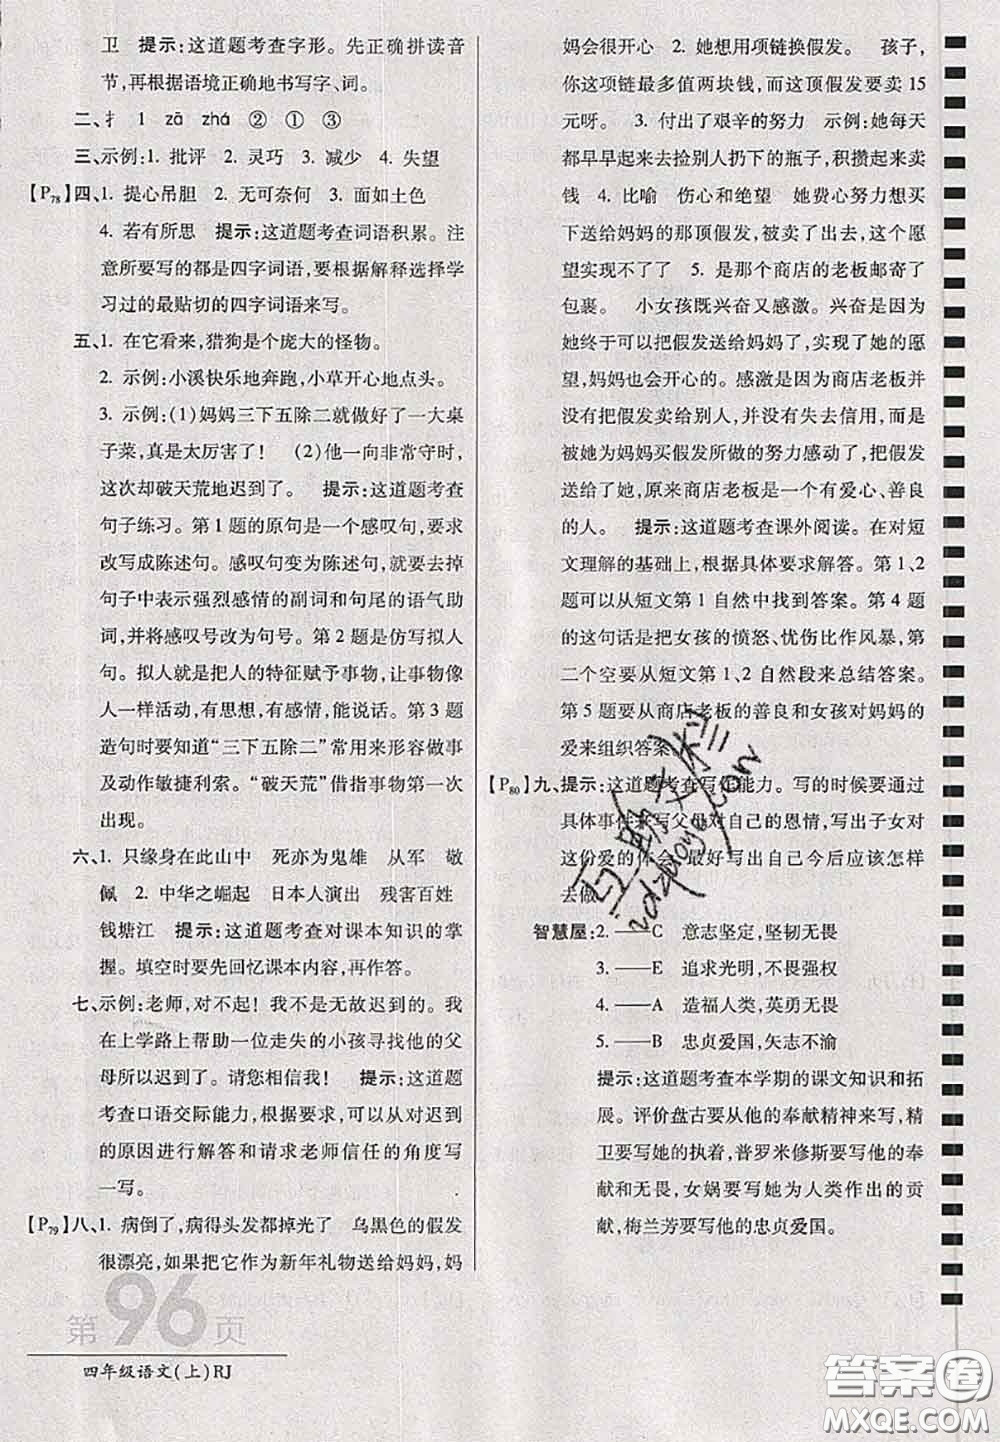 卫　提示:这道题考查字形。先正确拼读音
节,再根据语境正确地书写字、词。
二、扌　1　zā　zhá　②　①　③
三、示例:1. 批评　2. 灵巧　3. 减少　4. 失望
【P78】四、1. 提心吊胆　2. 无可奈何　3. 面如土色
4. 若有所思　提示:这道题考查词语积累。注
意所要写的都是四字词语,要根据解释选择学
习过的最贴切的四字词语来写。
五、1. 在它看来,猎狗是个庞大的怪物。
2. 示例:小溪快乐地奔跑,小草开心地点头。
3. 示例:(1)妈妈三下五除二就做好了一大桌
子菜,真是太厉害了!　(2)他一向非常守时,
这次却破天荒地迟到了。　提示:这道题考查
句子练习。第1题的原句是一个感叹句,要求
改写成陈述句。感叹句变为陈述句,就要去掉
句子中表示强烈感情的副词和句尾的语气助
词,并将感叹号改为句号。第2题是仿写拟人
句。拟人就是把人的特征赋予事物,让事物像
人一样活动,有思想,有感情,能说话。第3题
造句时要知道“三下五除二”常用来形容做事
及动作敏捷利索。“破天荒”借指事物第一次
出现。
六、1. 只缘身在此山中　死亦为鬼雄　从军　敬
佩　2. 中华之崛起　日本人演出　残害百姓
钱塘江　提示:这道题考查对课本知识的掌
握。填空时要先回忆课本内容,再作答。
七、示例:老师,对不起!我不是无故迟到的。我
在上学路上帮助一位走失的小孩寻找他的父
母所以迟到了。请您相信我!　提示:这道题
考查口语交际能力,根据要求,可以从对迟到
的原因进行解答和请求老师信任的角度写
一写。
【P79】八、1. 病倒了,病得头发都掉光了　乌黑色的假发
很漂亮,如果把它作为新年礼物送给妈妈,妈
第96页
四年级语文(上)RJ
妈会很开心　2. 她想用项链换假发。　孩子,
你这项链最多值两块钱,而这顶假发要卖15
元呀。　3. 付出了艰辛的努力　示例:她每天
都早早起来去捡别人扔下的瓶子,积攒起来卖
钱　4. 比喻　伤心和绝望　她费心努力想买
下送给妈妈的那顶假发,被卖了出去,这个愿
望实现不了了　5. 是那个商店的老板邮寄了
包裹。　小女孩既兴奋又感激。兴奋是因为
她终于可以把假发送给妈妈了,实现了她的愿
望,妈妈也会开心的。感激是因为商店老板并
没有把假发卖给别人,并没有失去信用,而是
被她为妈妈买假发所做的努力感动了,把假发
送给了她,原来商店老板是一个有爱心、善良
的人。　提示:这道题考查课外阅读。在对短
文理解的基础上,根据具体要求解答。第1、2
题可以从短文第1自然中找到答案。第4题
的这句话是把女孩的愤怒、忧伤比作风暴,第
二个空要从短文第1、2自然段来总结答案。
第5题要从商店老板的善良和女孩对妈妈的
爱来组织答案
【P80】九、提示:这道题考查写作能力。写的时候要通过
具体事件来写父母对自己的恩情,写出子女对
这份爱的体会,最好写出自己今后应该怎样
去做
智慧屋:2. ——C　意志坚定,坚韧无畏
3. ——E　追求光明,不畏强权
4. ——A　造福人类,英勇无畏
5. ——B　忠贞爱国,矢志不渝
提示:这道题考查本学期的课文知识和拓
展。评价盘古要从他的奉献精神来写,精
卫要写她的执着,普罗米修斯要写他的奉
献和无畏,女娲要写她为人类作出的贡
献,梅兰芳要写他的忠贞爱国。
答案圈
MXQE.COM